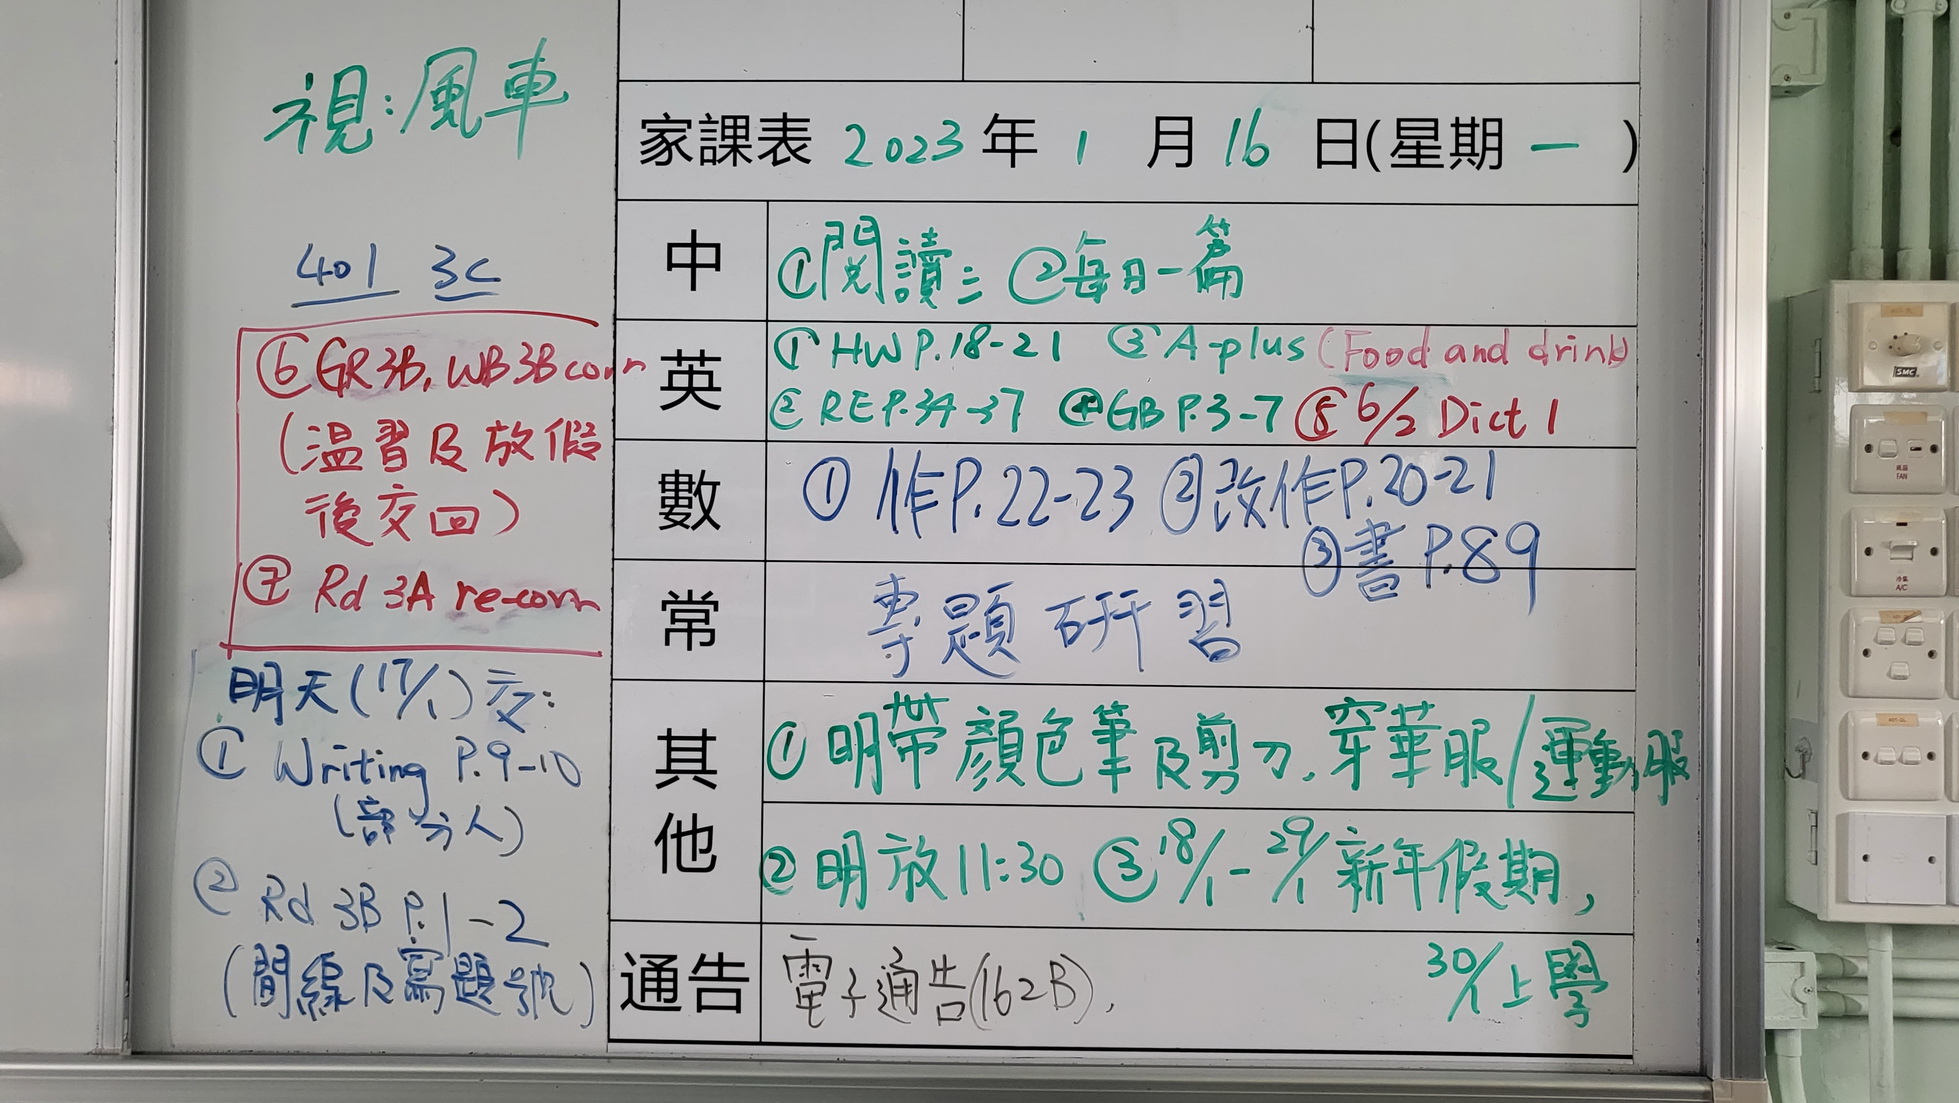 視:風車
401 3C
⑥ GR3B, WB3B corr
(溫習及放假
後交回)
⑦ Rd 3A re-corr
明天(17/1)交:
① Writing P.9-10
(部分人)
② Rd 3B P.1-2
(間線及寫題號)
家課表 2023 年 1 月 16 日(星期 一 )
中 ①閱讀三 ②每日一篇
英 ① HW P.18-21 ③ A-plus (Food and drink)
② RE P.34-37 ④ GB P.3-7 ⑤ 6/2 Dict 1
數 ① 作P.22-23 ②改作P.20-21
③書P.89
常 專題研習
其他 ① 明帶顏色筆及剪刀, 穿華服/運動服
② 明放11:30 ③ 18/1-29/1 新年假期,
30/1上學
通告 電子通告(162B),